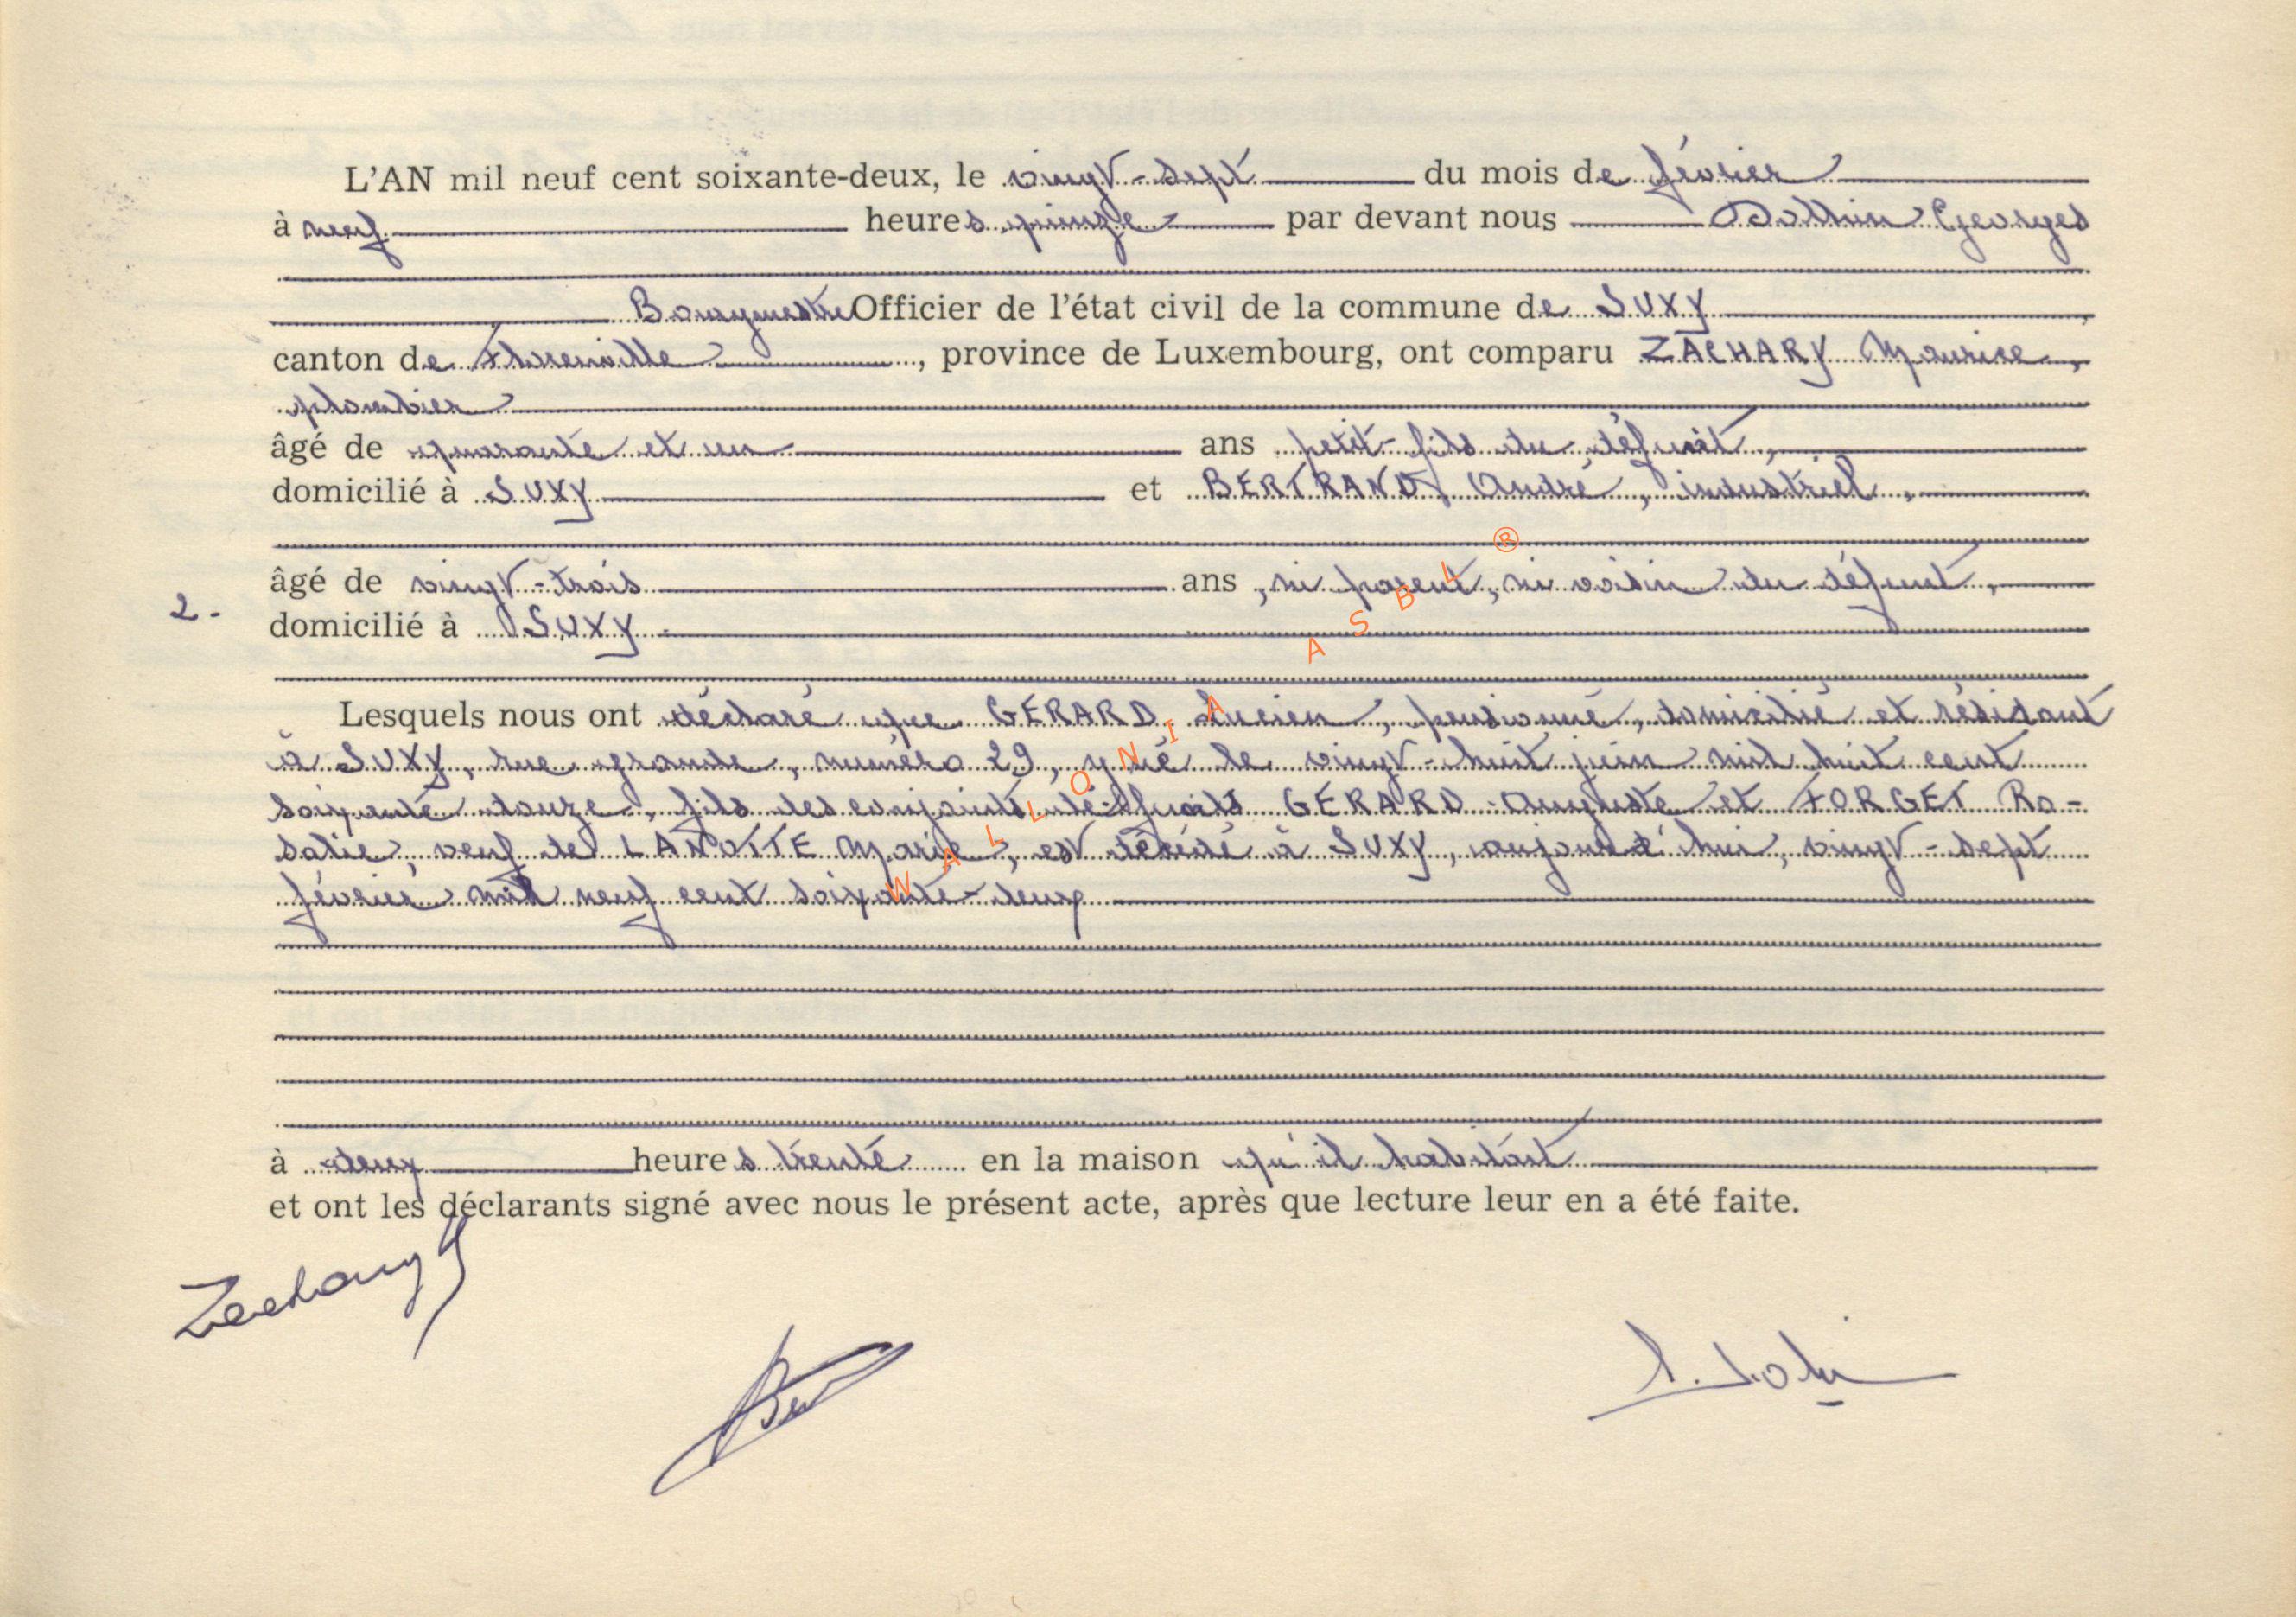 L'AN mil neuf cent soixante-deux, le vingt-sept du mois de février
à neuf heures quinze par devant nous Georges
Bourgmestre Officier de l'état civil de la commune de SUXY
canton de Florenville, province de Luxembourg, ont comparu ZACHARY Maurice,
plombier
âgé de quarante et un ans petit-fils du défunt,
domicilié à SUXY et BERTRAND André, industriel,
âgé de vingt-trois ans, ni parent, ni voisin du défunt,
2- domicilié à SUXY
Lesquels nous ont déclaré que GERARD Lucien, pensionné, domicilié et résidant
à SUXY, rue grande, numéro 29, y né le vingt-huit juin mil huit cent
soixante douze, fils des conjoints défunts GERARD Auguste et FORGET Ro-
salie, veuf de LANOTTE Marie, est décédé à SUXY, aujourd'hui, vingt-sept
février mil neuf cent soixante-deux
à deux heures trente en la maison qu'il habitait
et ont les déclarants signé avec nous le présent acte, après que lecture leur en a été faite.
Zachary
WALLONIA ASBL ®